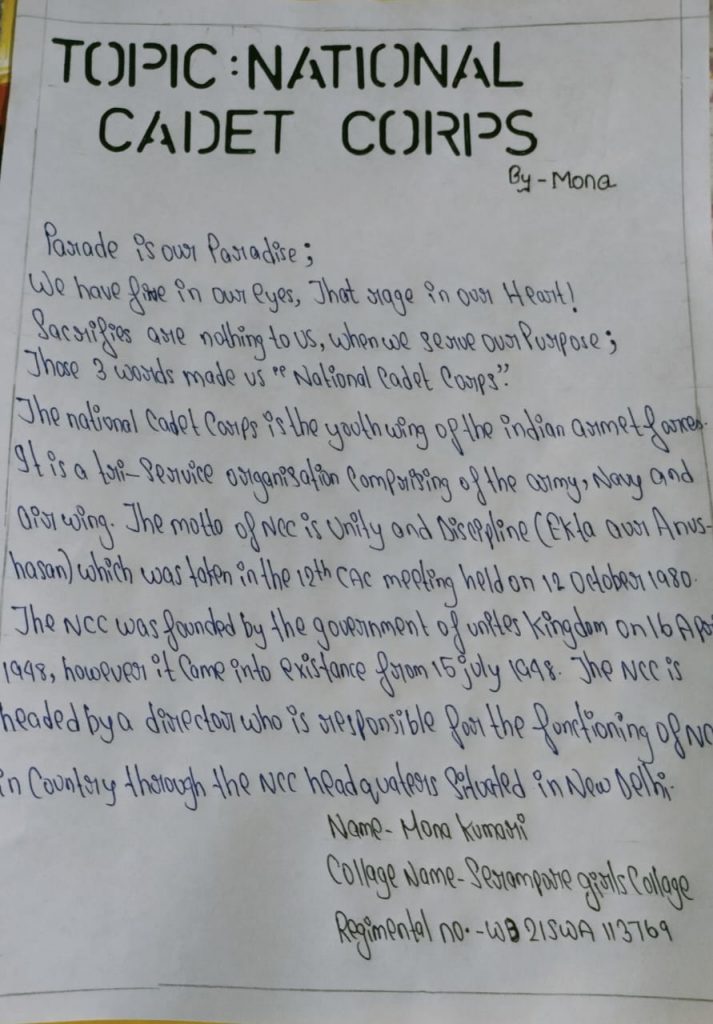 TOPIC:NATIONAL
CADET CORPS
By-Mona
Parade is our Paradise;
We have fire in our eyes, That rage in our Heart!
Sacrifies are nothing to us, when we serve our Purpose;
Those 3 words made us "National Cadet Corps".
The national Cadet Corps is the youth wing of the indian armet forces.
It is a tri-Service organisation Comprising of the army, Navy and
Air wing. The motto of NCC is Unity and Discipline (Ekta aur Anus-
hasan) which was taken in the 12th CAC meeting held on 12 October 1980.
The NCC was founded by the government of unites Kingdom on 16 Apr
1948, however it Came into existance from 15 july 1948. The NCC is
headed by a director who is responsible for the functioning of NC
in Country through the NCC headquaters Situated in New Delhi.
Name- Mona Kumari
Collage Name- Serampore girls Collage
Regimental no.-WB21SWA113769